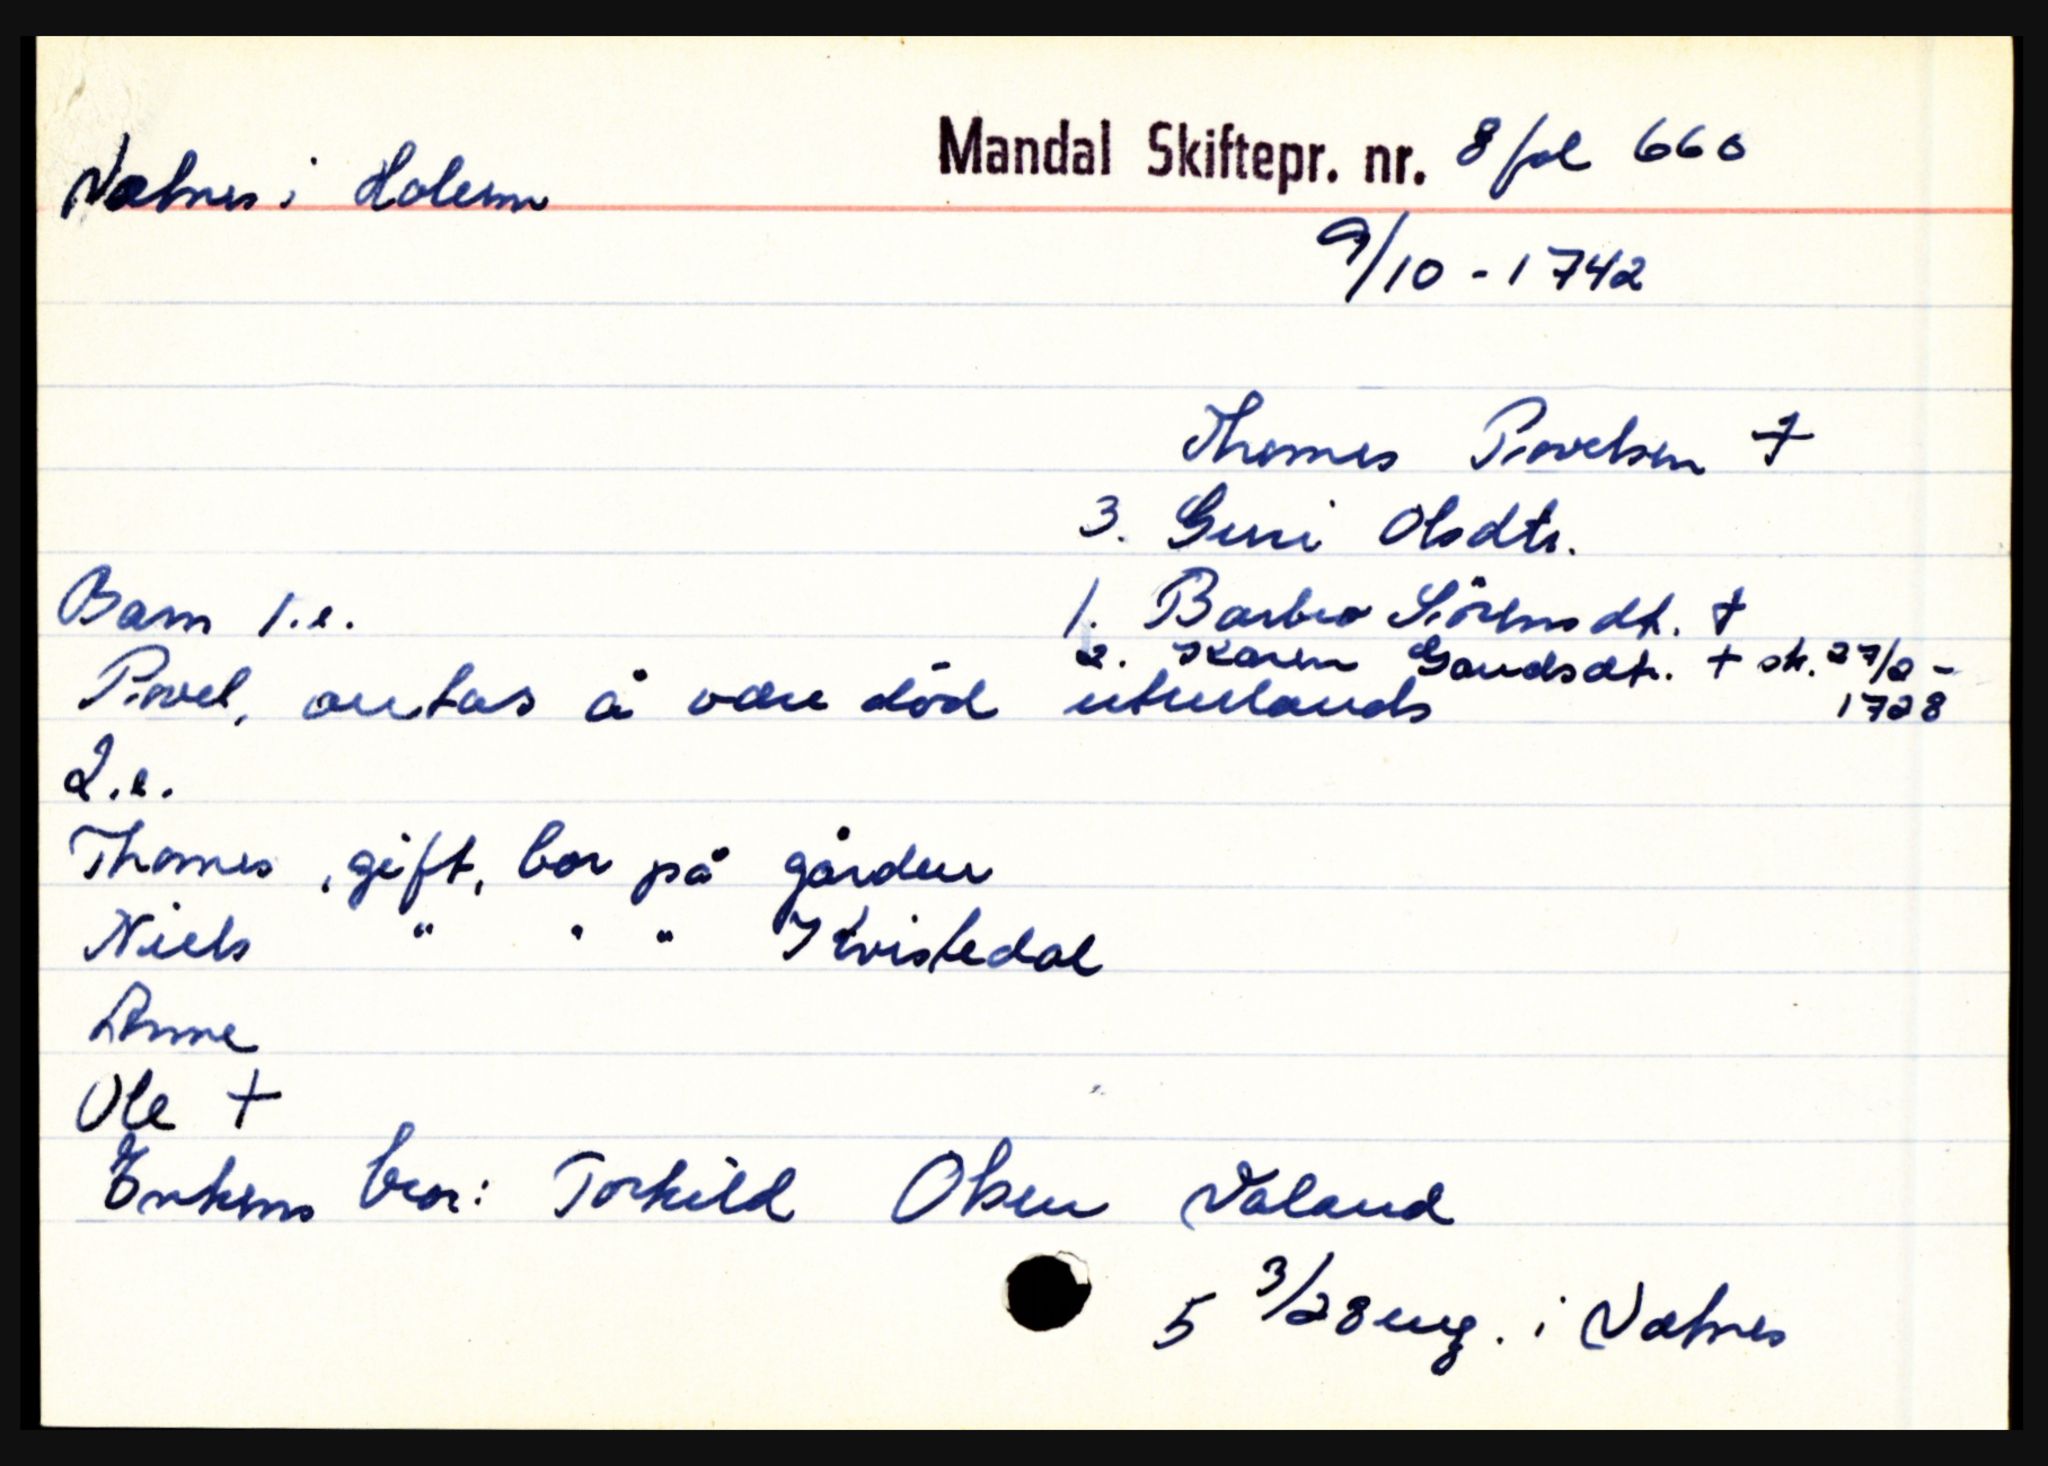 Mandal Skiftepr. nr. 8 fol 660
Valnes i Holum
9/10 - 1742
Thomas Povelsen †
3. Guri Olsdtr.
Barn 1.e.
1. Barbro Sörensdtr. †
2. Karen Gaudsdtr. † sk. 27/2 - 1728
Povel, antas å være död utenlands
2.e.
Thomas, gift, bor på gården
Niels " " " Kvisledal
Anne
Ole †
Enkens bror: Torkild Olsen Valand
5 3/28 eng. i Valnes